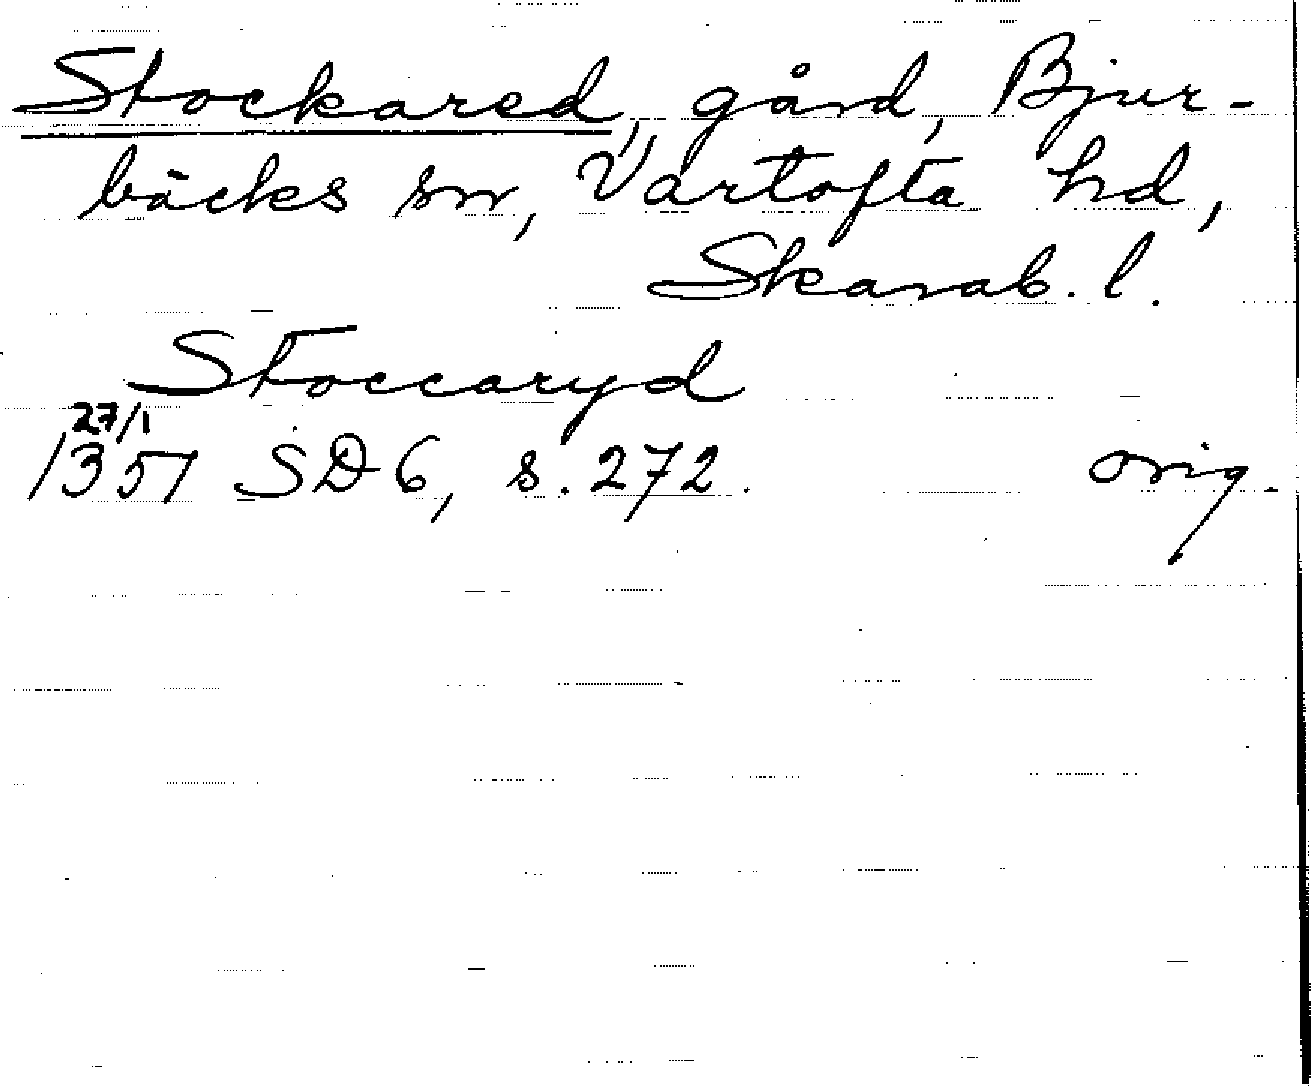 Stockared, gård, Bjur-
bäcks sn, Vartofta hd,
Skarab. l.
Stoccaryd
27/1
1351 SD 6, s. 272. orig.